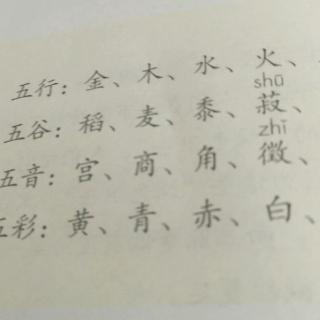 五行：金、木、水、火、
shū
五谷：稻、麦、黍、菽、
zhǐ
五音：宫、商、角、徵、
五彩：黄、青、赤、白、